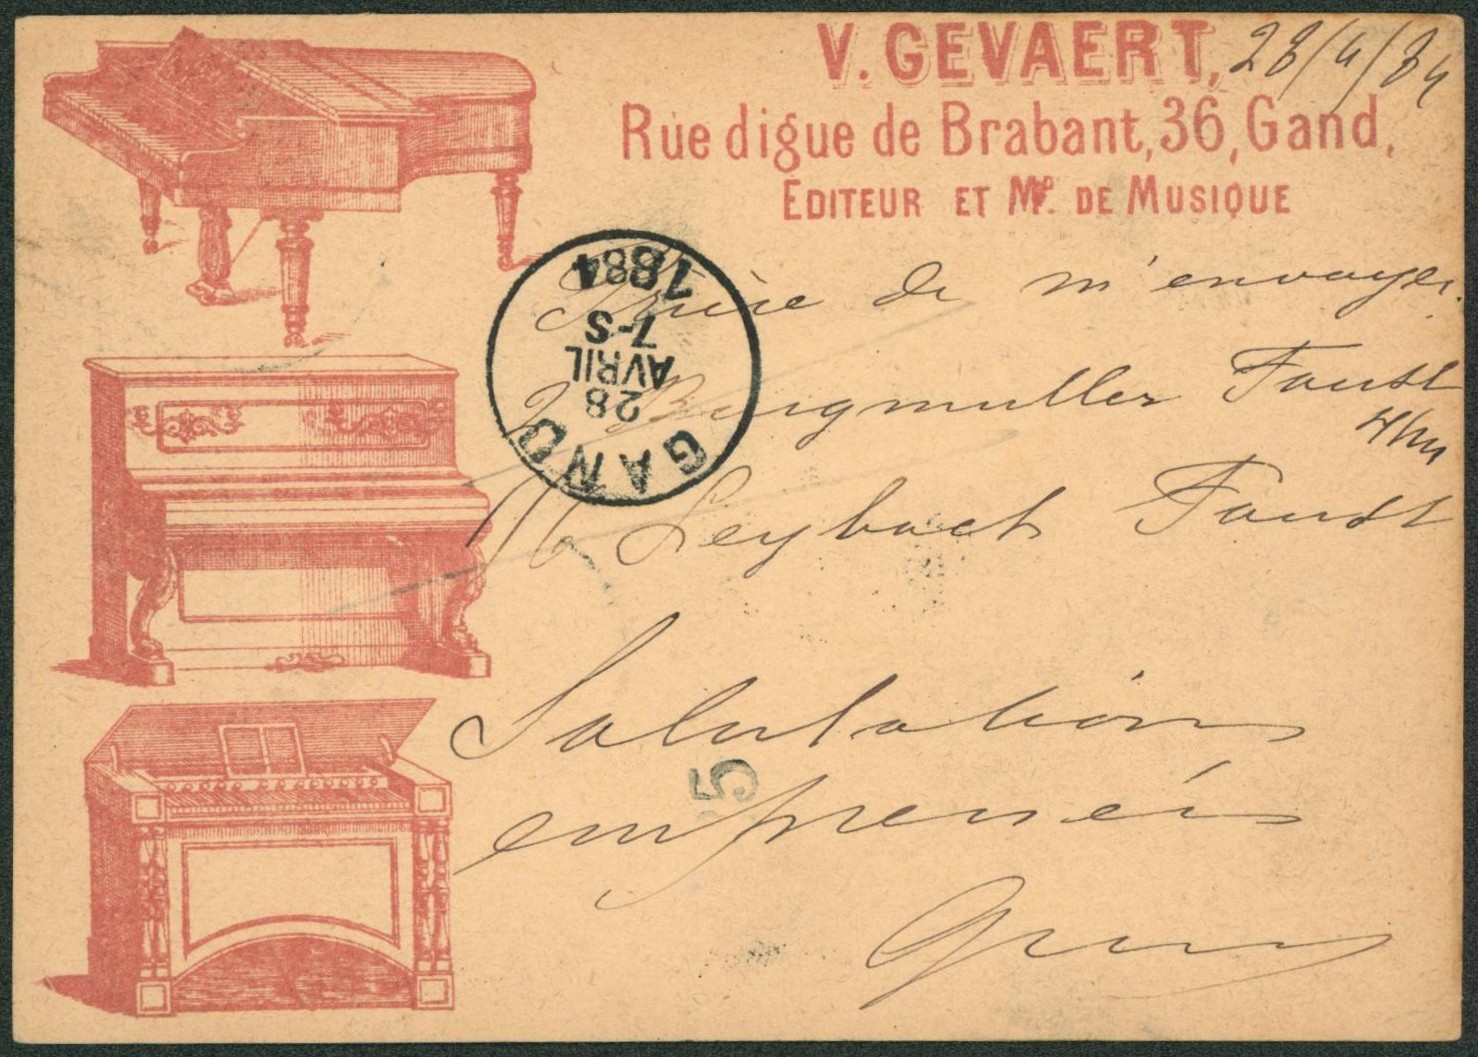 V. GEVAERT, 28/4/84
Rue digue de Brabant, 36, Gand.
EDITEUR ET Md. DE MUSIQUE
Prière de m'envoyer
2 Burgmuller Faust
4/m
Leybach Faust
Salutations
empressées
GAND
28
AVRIL
7-S
1884
5